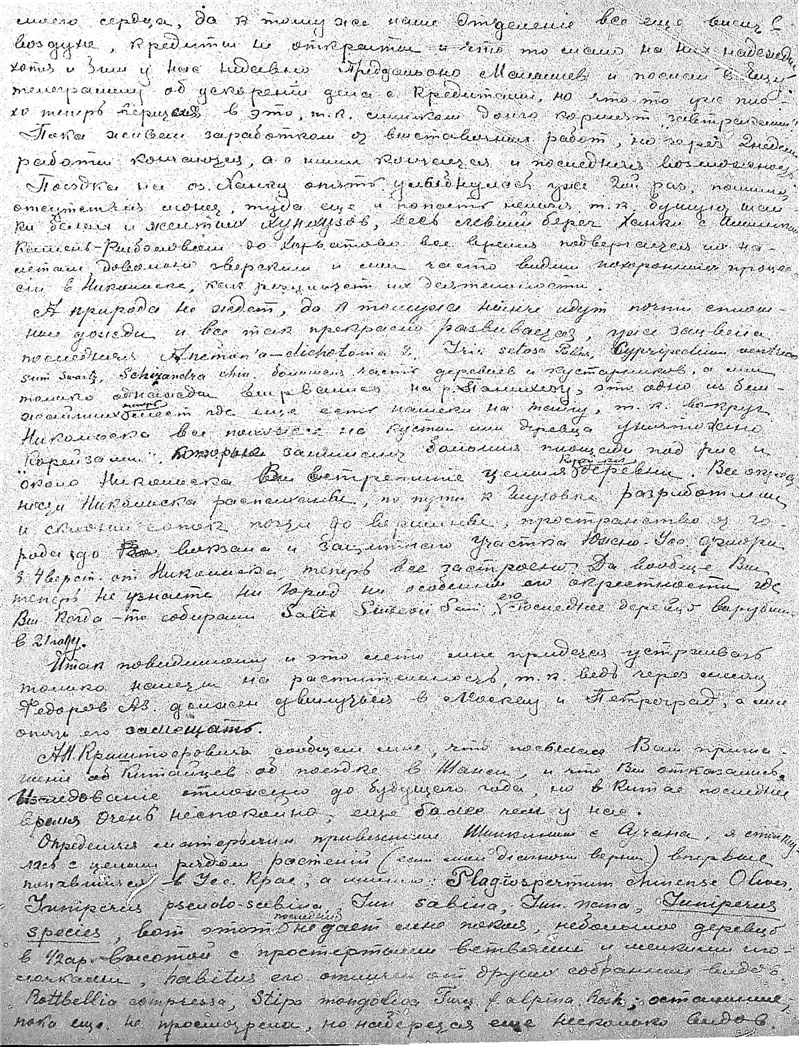 моего сердца, да к тому же наше Отделение все еще висит в
воздухе, кредиты не открыты и что то мало на них надежды
хотя и Зим у нас недавно Предсельсно и послал в
телеграмму об ускорении дела с кредитами, но что-то уже пло-
хо теперь верится в это, т.к. слишком долго кормят "завтраками"
Пока живем заработком от выставочных работ, но через 2 недели
работы кончаются, а с ними кончается и последняя возможность
Поездка на оз. Ханку опять улыбнулась уже 2ой раз, помимо
отсутствия монет, туда еще и попасть нельзя т.к. бушуют шай
ки белых и желтых хунхузов, весь левый берег Ханки с
Камень-Рыболовом до Хорватово все время подвергается их на-
летам довольно зверским и мы часто видим похоронные процес-
сии в Никольске, как результат их деятельности.
А природа не ждет, да к тому же нынче идут почти сплош-
ные дожди и все так прекрасно развивается, уже зацвела
последняя dichotoma L. Iris setosa Pallas, Cypripedium ventrico
sum Swartz, Schizandra chin. большая часть деревьев и кустарников, а мы
только однажды вырвались на р. , это одно из бли-
жайших теперь мест где еще есть намеки на тайгу, т.к. вокруг
Никольска все похожее на кустик или деревцо уничтожено
корейцами, которые занимают большие площади под рис и
около Никольска Вы встретите целые корейские деревни. Все окрест
ности Никольска распаханы, по пути к разработаны
и склоны сопок почти до вершины, пространство от го-
рода до вокзала и защитного участка Южно-Усс. фермы
3-4 верст. от Никольска теперь все застроено. Да вообще Вы
теперь не узнаете ни город ни особенно его окрестности где
Вы когда-то собирали Salix его последнее деревцо вырубили
в 21 году.
Итак повидимому и это лето мне придется устраивать
только налеты на растительность, т.к. ведь через месяц
Федоров Аз. должен двинуться в Москву и Петроград, а мне
опять его замещать.
А.Н. Криштофович сообщил мне, что посылал Вам пригла-
шение от Китайцев об поездке в Шанси, и что Вы отказались
Исследование отложено до будущего года, но в Китае последнее
время очень неспокойно, еще более чем у нас.
Определяя материалы привезенные Шишкиным с Сучана, я столкну
лась с целым рядом растений (если мой диагноз верны) впервые
попавшихся в Усс. Крае, а именно: Plagiospermum chinense Oliver.
Juniperus pseudo-sabina, Jun. sabina, Jun. nana, Juniperus
species, вот этот последний не дает мне покоя, небольшое деревцо
в 4 2ар. высотой с простертыми ветвями и мелкими иго-
лочками, habitus его отличен от других собранных видов
Rottbellia compressa, Stipa mongolica Turcz. f. alpina Rosh., остальные
пока еще не просмотрела, но наберется еще несколько видов.